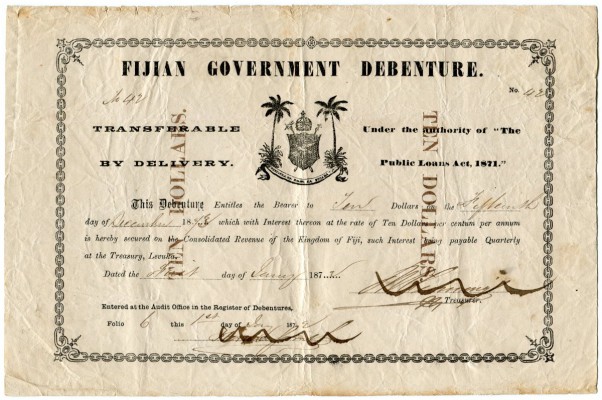 FIJIAN GOVERNMENT DEBENTURE.
No 42
No. 42
TRANSFERABLE
BY DELIVERY.
Under the authority of "The
Public Loans Act, 1871."
TEN DOLLARS.
TEN DOLLARS.
This Debenture Entitles the Bearer to Ten Dollars on the Fifteenth
day of December 187 which with Interest thereon at the rate of Ten Dollars per centum per annum
is hereby secured on the Consolidated Revenue of the Kingdom of Fiji, such Interest being payable Quarterly
at the Treasury, Levuka.
Dated the First day of 187
Treasurer.
Entered at the Audit Office in the Register of Debentures,
Folio 6 this 1st day of 187